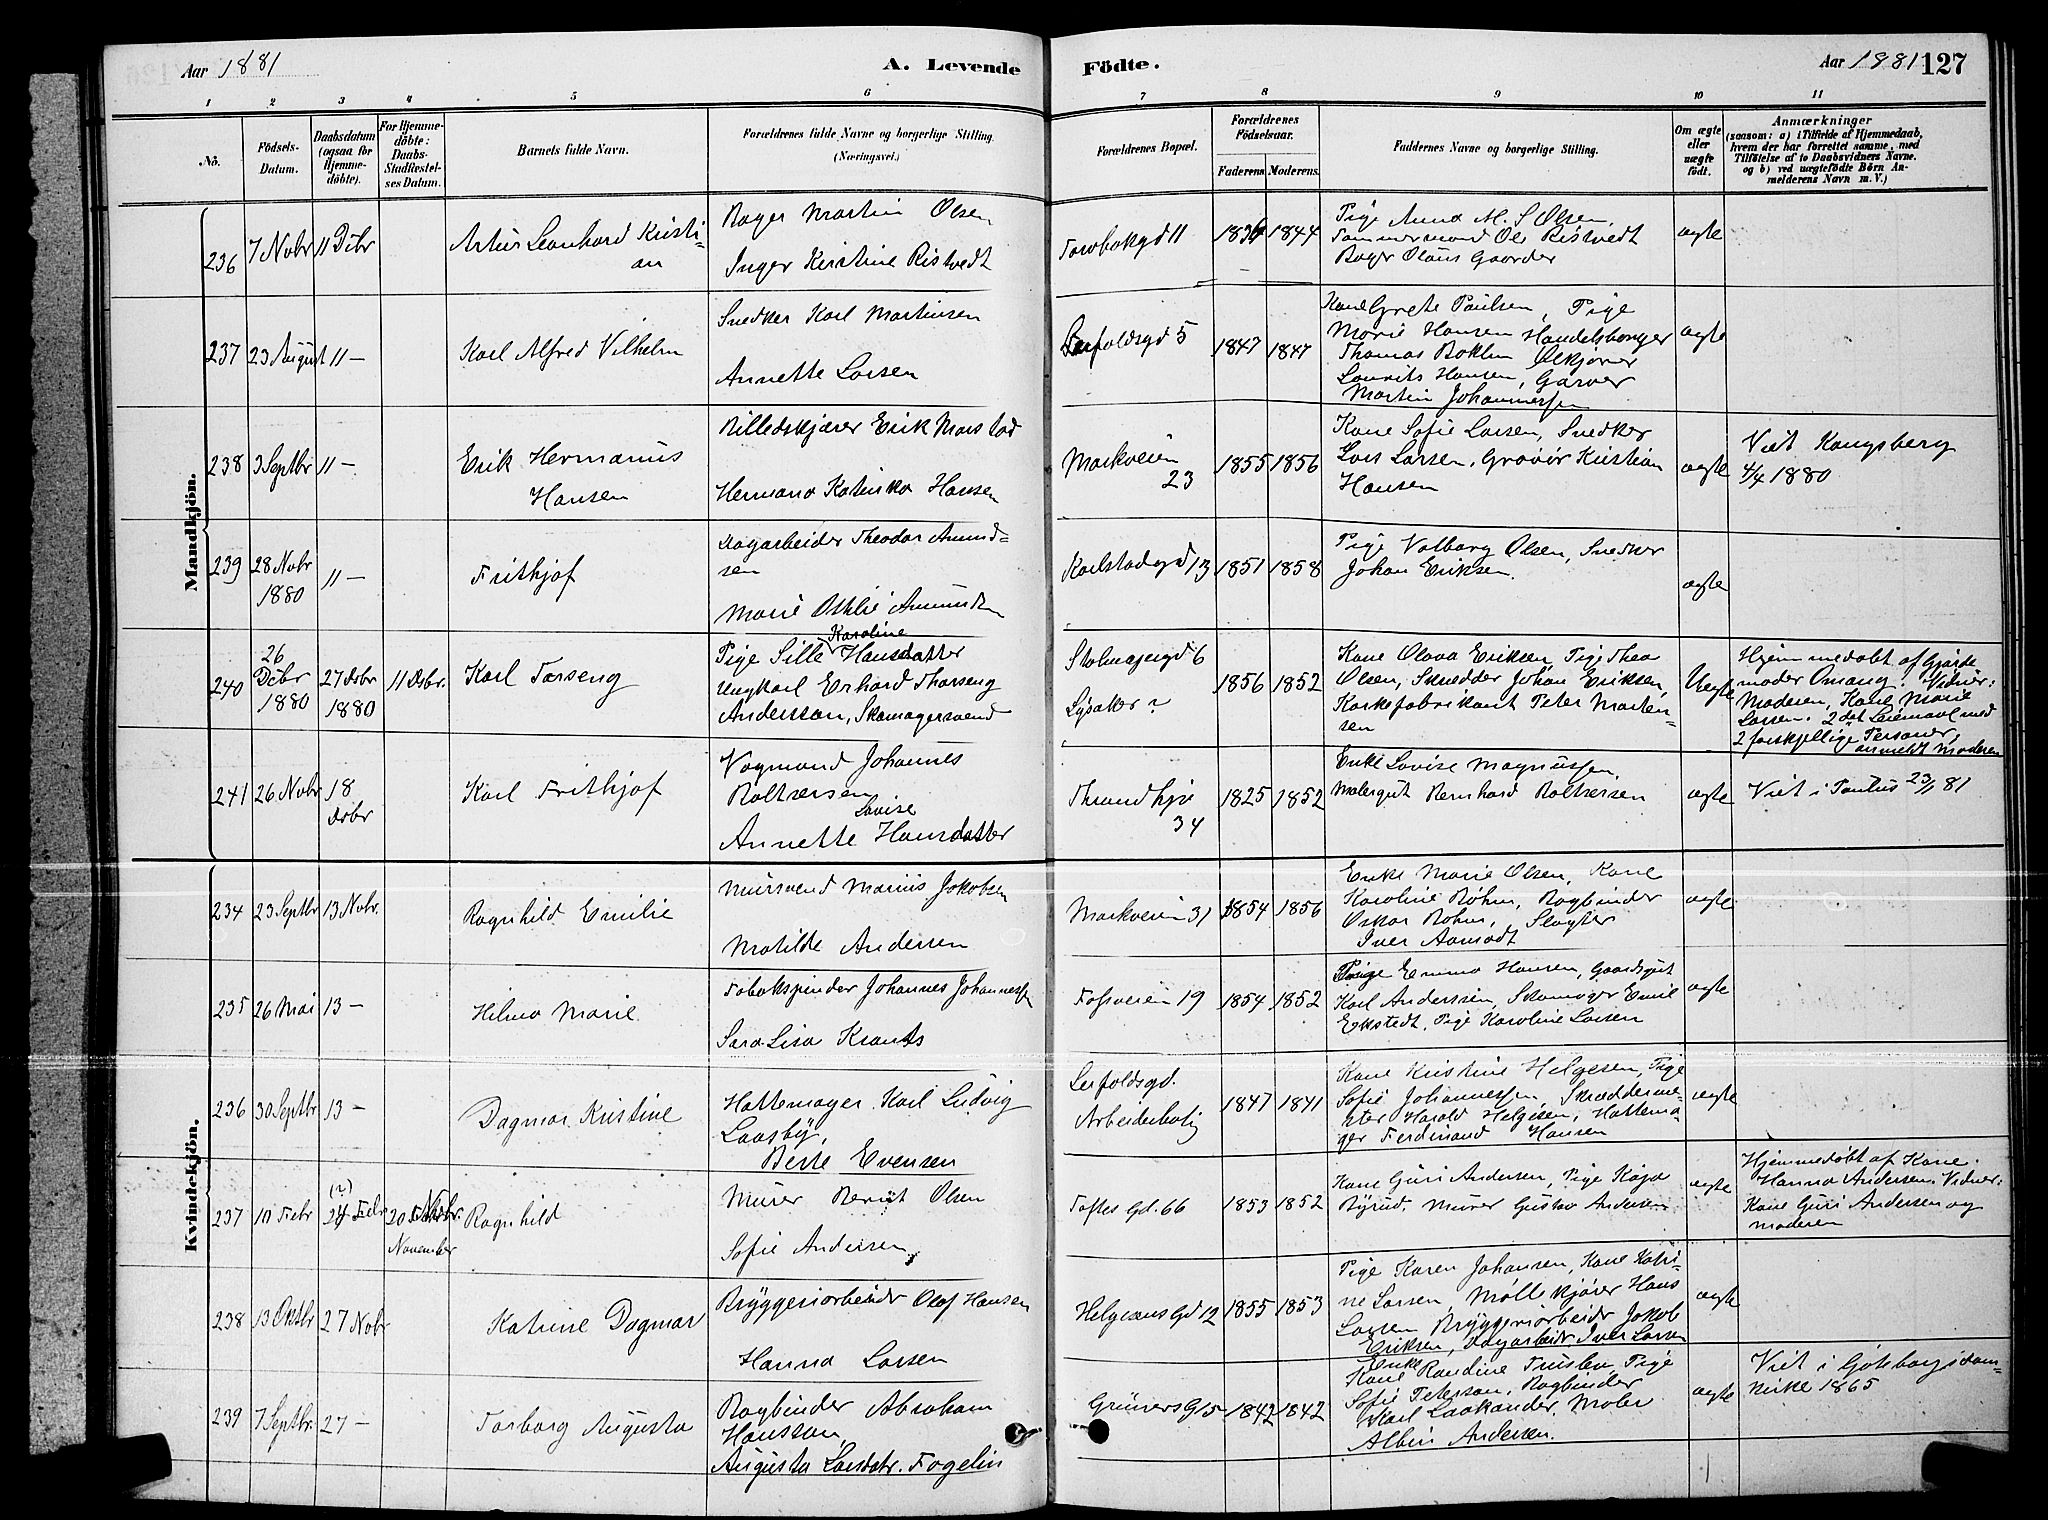 Aar 1881
A. Levende
Födte.
Aar 1881
127
1 2 3 4 5 6 7 8 9 10 11
No.
Födsels-
Datum.
Daabsdatum
(ogsaa for
Hjemme-
döbte).
For Hjemme-
döbte:
Daabs-
Stadfæstel-
ses Datum.
Barnets fulde Navn.
Forældrenes fulde Navne og borgerlige Stilling.
(Næringsvei.)
Forældrenes Bopæl.
Forældrenes
Födselsaar.
Faderens
Moderens.
Faddernes Navne og borgerlige Stilling.
Om ægte
eller
uægte
födt.
Anmærkninger
(saasom: a) i Tilfælde af Hjemmedaab,
hvem der har forrettet samme, med
Tilföielse af to Daabsvidners Navne.
og b) ved uægtefödte Börn An-
melderens Navn m. V.)
Mandkjön.
236 7 Nobr 11 Dcbr
Artur Leonhard Kristi-
an
Bager Martin Olsen
Inger Kirstine Ristvedt
Torvbakgd 11
1836 1844
Pige Anna M. S Olsen,
Tømmermand Ole Ristvedt
Bager Olaus Gaarder
ægte
237 23 August 11 —
Karl Alfred Vilhelm
Snedker Karl Martinsen
Annette Larsen
Leirfaldsgd 5
1847 1847
Kone Grete Paulsen, Pige
Marie Hansen Handelsborger
Thomas Øikjører
Laurits Hansen, Garver
Martin Johannessen
ægte
238 3 Septbr 11 —
Erik Hermanius
Hansen
Billedskjærer Erik Marstad
Hermana Katinka Hansen
Markveien
23
1855 1856
Kone Sofie Larsen, Snedker
Lars Larsen, Gravør Kristian
Hansen
ægte
Viet Kongsberg
4/4 1880
239 28 Nobr
1880
11 —
Frithjof
Dagarbeider Theodor Amund-
sen
Marie Othlie Amundsen
Karlstadgd 13
1851 1858
Pige Valborg Olsen, Snedker
Johan Eriksen.
ægte
240 26
Dcbr
1880
27 Dcbr
1880
11 Dcbr.
Karl Torseng
Karoline
Pige Sille Hansdatter
Ungkarl Erhard Tharseng
Andersson, Skomagersvend
Stolmagergd 6
Lysaker
1856 1852
Kone Olava Eriksen, Pige Thea
Olsen, Skrædder Johan Eriksen,
Korkefabrikant Peter Marten-
sen
Uægte
Hjemmedøbt af Gjorde-
moder Omang. Vidner:
Moderen, Kone Marie
Larsen. 2det Leiermaal med
2 forskjellige Personer,
anmeldt Moderen
241 26 Nobr 18
Dcbr
Karl Frithjof
Vognmand Johannes
Baltzersen
Lovise
Annette Hansdatter
Throndhjv
34
1825 1852
Enke Lovise Magnussen,
Malergut Bernhard Baltzersen
ægte
Viet i Paulus 23/1 81
Kvindekjön.
234 23 Septbr 13 Nobr.
Ragnhild Emilie
Mursvend Marius Jakobsen
Matilde Andersen
Markveien 31
1854 1856
Enke Marie Olsen, Kone
Karoline Bøhn, Bogbinder
Oskar Bøhn, Slagter
Iver Aamodt
ægte
235 26 Mai 13 —
Hilma Marie
Tobakspinder Johannes Johannessen
Sara Lisa Krantz
Fossveien 19
1854 1852
Pige Emma Hansen, Gaardsgut
Karl Anderssen, Skomager Emil
Ekstedt, Pige Karoline Larsen
ægte
236 30 Septbr 13 —
Dagmar Kristine
Hattemager Karl Ludvig
Laasby,
Berte Evensen
Leirfaldsgd.
Arbeiderbolig
1847 1841
Kone Kristine Helgesen, Pige
Sofie Johannessen, Skræddermes-
ter Harald Helgesen, Hattema-
ger Ferdinand Hansen
ægte
237 10 Febr
(?)
24 Febr
20 Nobr.
November
Ragnhild
Murer Bernt Olsen
Sofie Andersen
Toftes Gd. 66
1853 1852
Kone Guri Andersen, Pige Kaja
Byrud, Murer Gustav Andersen
ægte
Hjemmedøbt af Kone
Hanna Andersen. Vidner:
Kone Guri Andersen og
Moderen
238 13 Oktbr 27 Nobr
Katrine Dagmar
Bryggeriarbeider Olaf Hansen
Hanna Larsen
Helgesens Gd 12
1855 1853
Pige Karen Johansen, Kone Katri-
ne Larsen, Møllekjører Hans
Larsen Bryggeriarbeider Jakob
Eriksen, Dagarbeider Iver Larsen
ægte
239 7 Septbr. 27 —
Torborg Augusta
Bogbinder Abraham
Hansson,
Augusta Larsdatr. Fogelin
Grüners G 15
1842 1842
Enke
Kone Randine Truslen, Pige
Sofie Peterson, Bogbinder
Karl Laakander, Maler
Albin Andersen.
ægte
Viet i Göteborgs dom-
kirke 1865